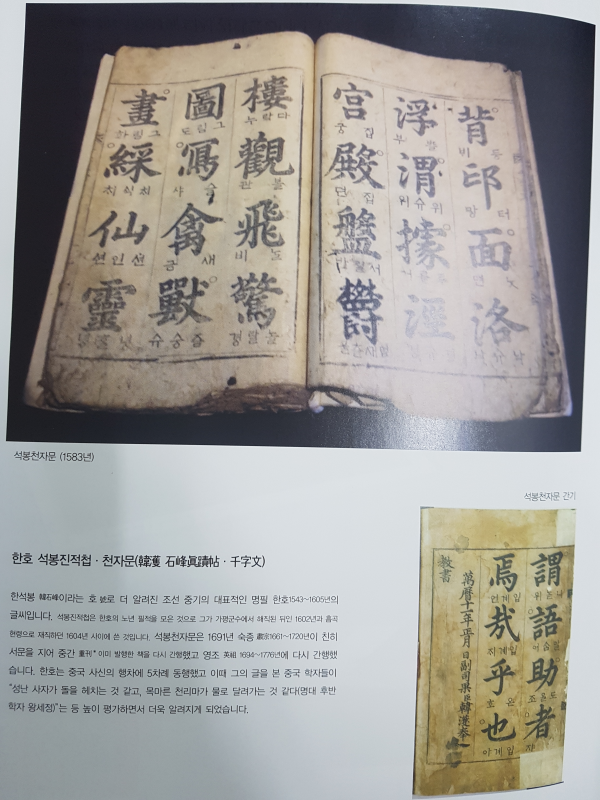 背邙面洛
浮渭據涇
宮殿盤鬱
樓觀飛驚
圖寫禽獸
畫綵仙靈
석봉천자문 (1583년)
석봉천자문 간기
謂語助者
焉哉乎也
萬曆十一年正月日副司果臣韓濩奉
敎書
한호 석봉진적첩 · 천자문(韓濩 石峰眞蹟帖 · 千字文)
한석봉 韓石峰이라는 호 號로 더 알려진 조선 중기의 대표적인 명필 한호1543~1605년의
글씨입니다. 석봉진적첩은 한호의 노년 필적을 모은 것으로 그가 가평군수에서 해직된 뒤인 1602년과 흡곡
현령으로 재직하던 1604년 사이에 쓴 것입니다. 석봉천자문은 1691년 숙종 肅宗1661~1720년이 친히
서문을 지어 중간 重刊*이미 발행한 책을 다시 간행했고 영조 英祖 1694~1776년에 다시 간행했
습니다. 한호는 중국 사신의 행차에 5차례 동행했고 이때 그의 글을 본 중국 학자들이
“성난 사자가 돌을 헤치는 것 같고, 목마른 천리마가 물로 달려가는 것 같다(명대 후반
학자 왕세정)”는 등 높이 평가하면서 더욱 알려지게 되었습니다.